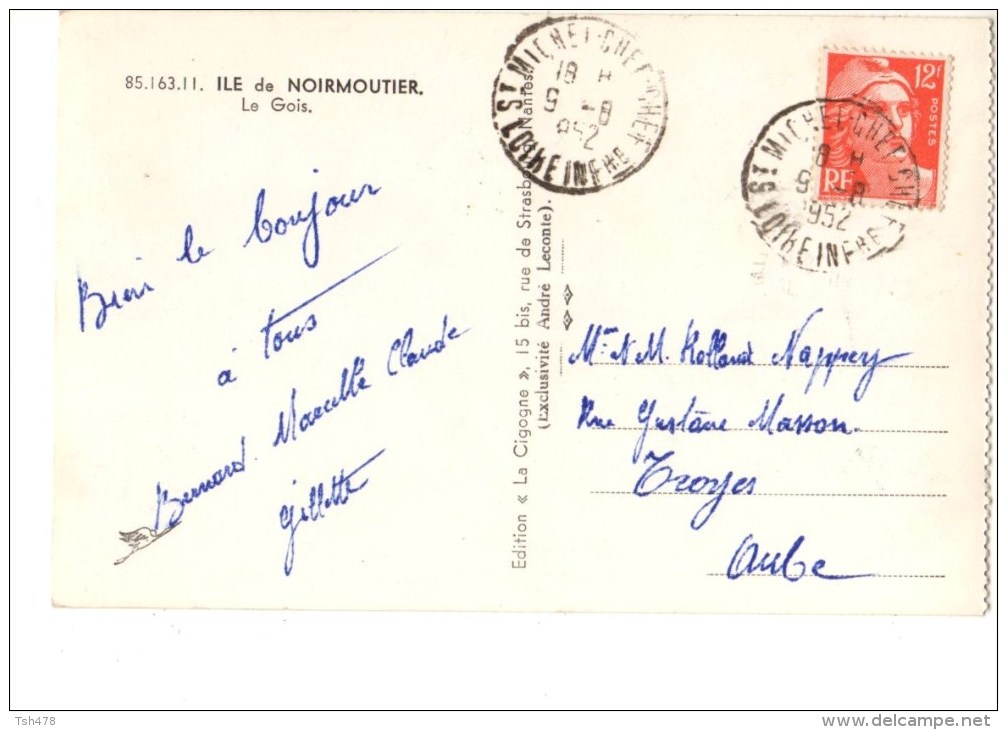 85.163.11. ILE de NOIRMOUTIER.
Le Gois.
Bien le bonjour
à tous
Bernard Marcelle Claude
Gillette
Edition « La Cigogne », 15 bis, rue de Strasbourg Nantes.
(Exclusivité André Leconte).
ST MICHEL-CHEF-CHEF
18 H
9 -8
1952
LOIRE INFRE
12F
POSTES
RF
ST MICHEL-CHEF-CHEF
18 H
9 -8
1952
LOIRE INFRE
Mme M. Holland Nappey
Rue Gustave Masson.
Troyes
Aube
Tsh478
www.delcampe.net